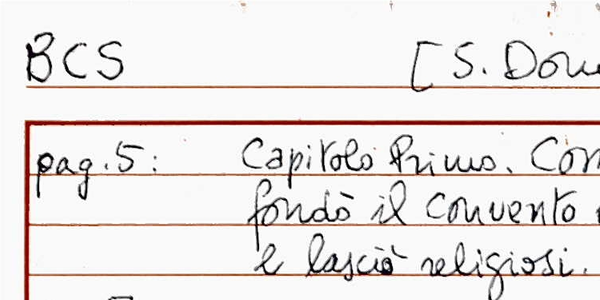 BCS [S. Dom
pag. 5: Capitolo Primo. Com
fondò il convento
e lasciò religiosi.